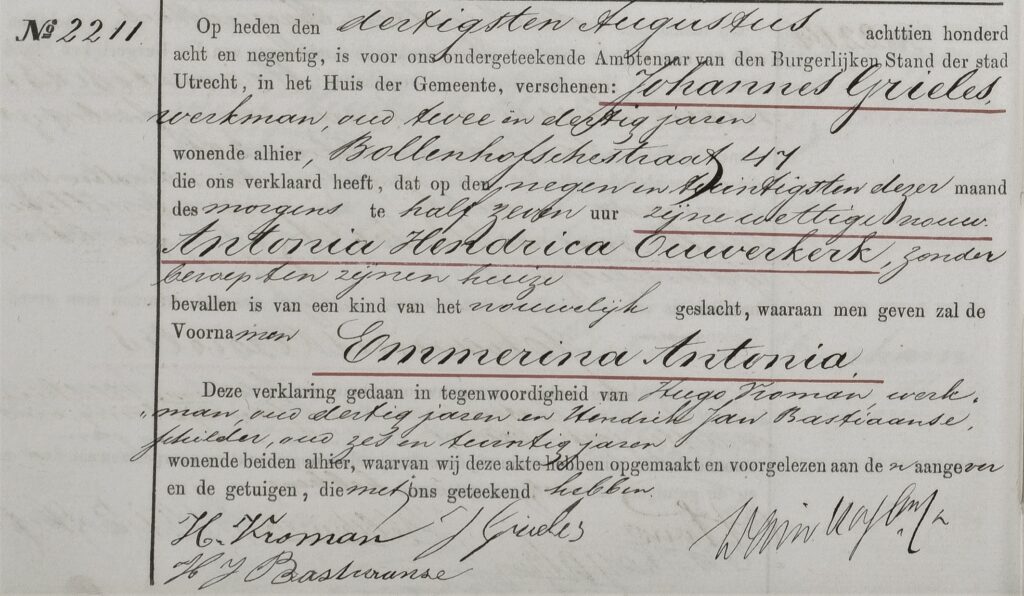 № 2211.
Op heden den dertigsten Augustus achttien honderd
acht en negentig, is voor ons ondergeteekende Ambtenaar van den Burgerlijken Stand der stad
Utrecht, in het Huis der Gemeente, verschenen: Johannes Grieles,
werkman, oud twee en dertig jaren
wonende alhier, Bollenhofschestraat 47
die ons verklaard heeft, dat op den negen en twintigsten dezer maand
des morgens te half zeven uur zijne wettige vrouw.
Antonia Hendrica Ouwerkerk, zonder
beroep ten zijnen huize
bevallen is van een kind van het vrouwelijk geslacht, waaraan men geven zal de
Voornamen Emmerina Antonia.
Deze verklaring gedaan in tegenwoordigheid van Hugo Vroman, werk-
man, oud dertig jaren en Hendrik Jan Bastiaanse,
schilder, oud zes en twintig jaren
wonende beiden alhier, waarvan wij deze akte hebben opgemaakt en voorgelezen aan den aangever
en de getuigen, die met ons geteekend hebben.
H. Vroman J Grieles
H J Bastiaanse